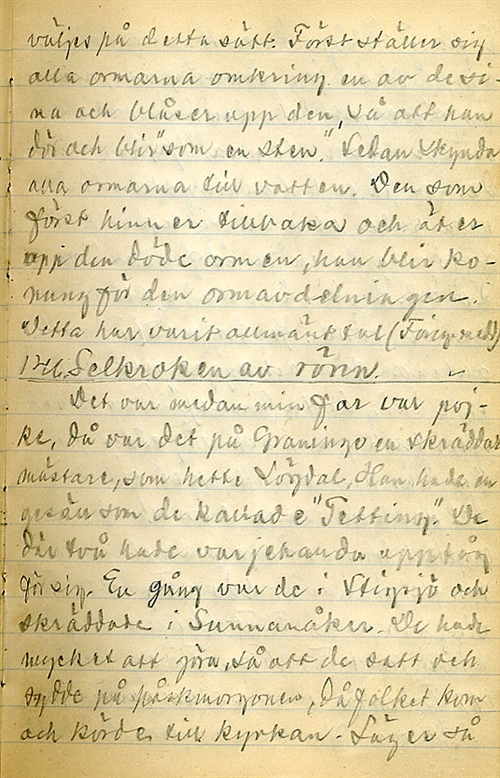 väljes på detta sätt. Först ställer sig
alla ormarna omkring en av de si-
na och blåser upp den, så att han
dör och blir "som en sten." Sedan skynda
alla ormarna till vatten. Den som
först hinner tillbaka och äter
upp den döde ormen, han blir ko-
nung för den ormavdelningen.
Detta har varit allmänt tal (Föreg. medd.)
146. Selkroken av rönn.
Det var medan min far var poj-
ke, då var det på Graninge en skräddar
mästare, som hette Lögdal, Han hade en
gesäll som de kallade "Tetting". De
där två hade varjehanda upptåg
för sig. En gång var de i Stigsjö och
skräddade i Sunnanåker. De hade
mycket att göra, så att de satt och
sydde på påskmorgonen, då folket kom
och körde till kyrkan. Säger så